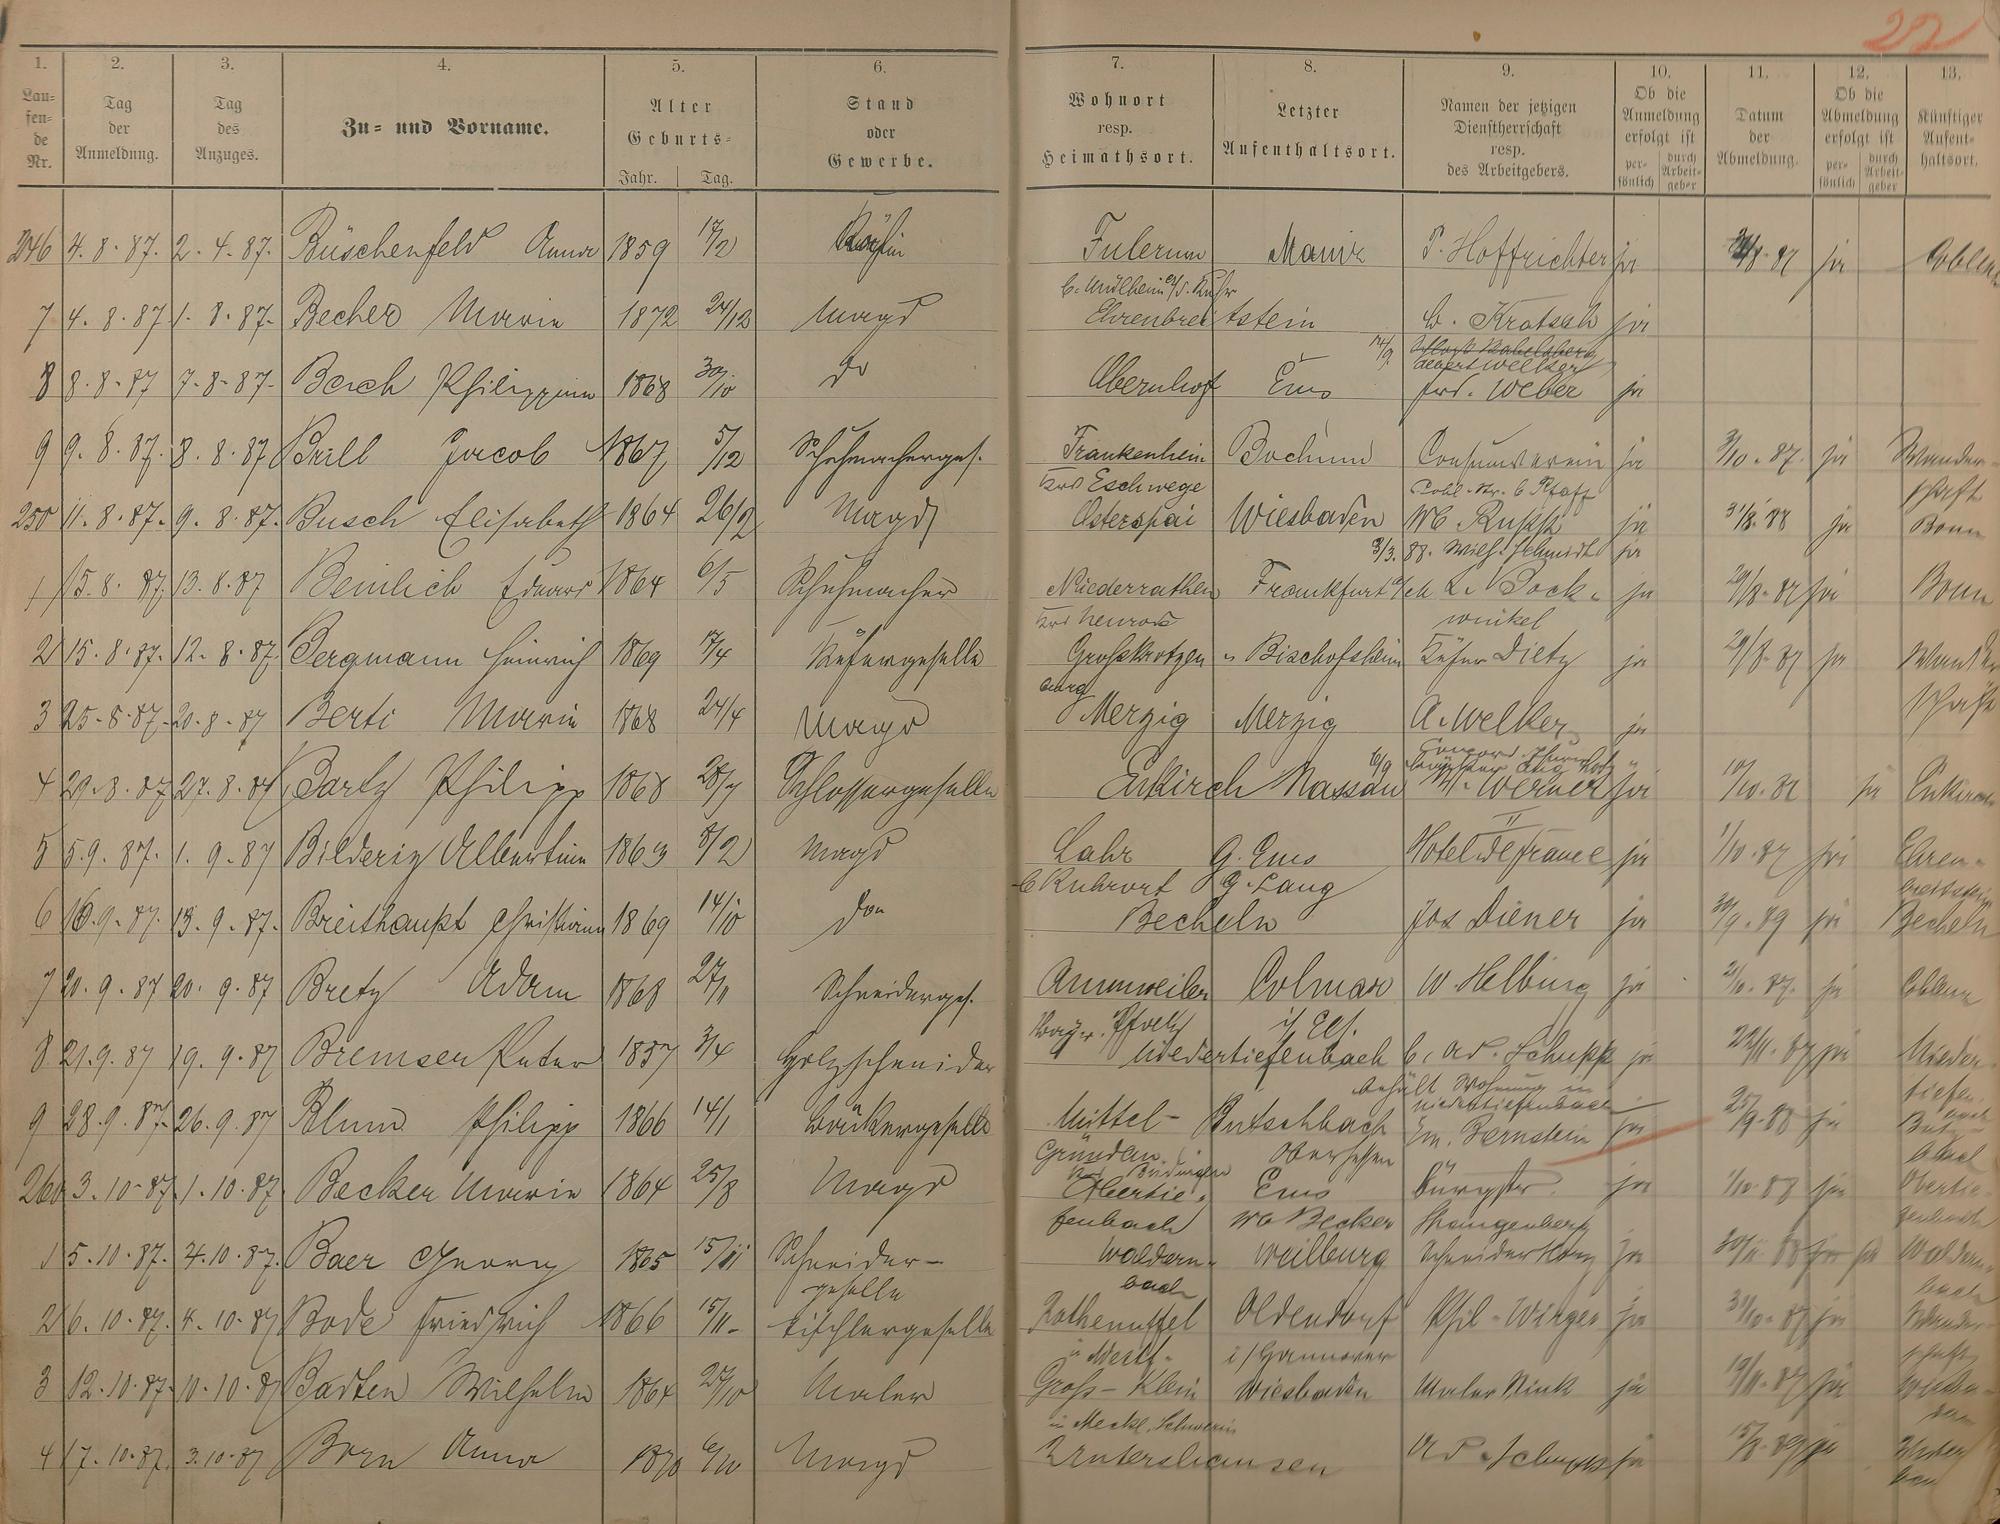 22
1. 2. 3. 4. 5. 6. 7. 8. 9. 10. 11. 12. 13.
Laufende Nr. Tag der Anmeldung. Tag des Anzuges. Zu- und Vorname. Alter Geburts- Jahr. Tag. Stand oder Gewerbe. Wohnort resp. Heimathsort. Letzter Aufenthaltsort. Namen der jetzigen Dienstherrschaft resp. des Arbeitgebers. Ob die Anmeldung erfolgt ist persönlich durch Arbeitgeber Datum der Abmeldung. Ob die Abmeldung erfolgt ist persönlich durch Arbeitgeber Künftiger Aufenthaltsort.
246 4.8.87. 2.4.87. Büschenfeld Anna 1859 17/2 Köchin Fulerum Mainz P. Hoffrichter ja 8.87 ja Coblenz
b. Mülheim a/d. Ruhr
7 4.8.87 1.8.87. Becher Maria 1872 24/12 Magd Ehrenbreitstein C. Kratsch ja
8 8.8.87 7.8.87. Berch Philippine 1868 30/10 do Obernhof Ems Frd. Weber ja
9 9.8.87. 8.8.87 Brill Jacob 1867 5/12 Schuhmacherges. Frankenhein Bochum Consumverein ja 3/10.87. ja Wander-
Krs Eschwege schaft
250 11.8.87. 9.8.87. Busch Elisabeth 1864 26/9 Magd Osterspai Wiesbaden Wb. Rupp ja 31/8.88 ja Bonn
3/3.88. Wilh. Schmidt ja
1 15.8.87. 13.8.87 Bemlich Eduard 1864 6/5 Schuhmacher Niederrathen Frankfurt a/M L. Bock- ja 29/8.87 ja Bonn
Krs Neurode winkel
2 15.8.87. 12.8.87. Bergmann Heinrich 1869 17/4 Küfergeselle Großkrotzen- Bischofsheim Küfer Dietz ja 29/8.87 ja Wander
burg schaft
3 25.8.87. 20.8.87 Berti Maria 1868 24/4 Magd Merzig Merzig A. Welker ja
4 29.8.87 27.8.87 Bartz Philipp 1868 28/7 Schlossergeselle Enkirch Nassau W. Werner ja 10/10.87 ja Enkirch
5 5.9.87. 1.9.87 Bilderiz Albertine 1863 8/2 Magd Lahr G. Ems Hotel de France ja 1/10.87 ja Ehren-
b Ruhrort G. Lang breitstein
6 16.9.87. 13.9.87. Breithaupt Christiane 1869 14/10 do Becheln Jos Diener ja 30/9.89 ja Becheln
7 20.9.87 20.9.87 Bretz Adam 1868 27/11 Schneiderges. Annweiler Colmar W. Helbing ja 2/10.87. ja Coblenz
Bayer. Pfalz i/ Els.
8 21.9.87 19.9.87 Bremser Peter 1857 3/4 Holzschneider Niedertiefenbach b. Ad. Schupp ja 22/11.87 ja Nieder-
behält Wohnung in Niedertiefenbach tiefenbach
9 28.9.87. 26.9.87 Blum Philipp 1866 14/1 Bäckergeselle Mittel- Butschbach Em. Bernstein ja 25/9.88 ja
Gründau Oberhessen
Krs Büdingen
260 3.10.87. 1.10.87. Becker Maria 1864 25/8 Magd Obertie- Ems Bürgstr. ja 1/10.88 ja Obertie-
fenbach Wb Becker Spangenberg fenbach
1 5.10.87. 4.10.87. Baer Georg 1865 15/11 Schneider- Waldern- Weilburg Schneider Konz ja ja Waldern-
geselle bach bach
2 6.10.87. 4.10.87 Bode Friedrich 1866 15/11. Tischlergeselle Rothenuffel Oldendorf Phil. Wirges ja 31/10.87 ja Wander-
in Westf. i/ Hannover schaft
3 12.10.87. 10.10.87 Badten Wilhelm 1864 27/10 Maler Groß-Klein Wiesbaden Maler Rink ja 19/11.87 ja Wiesba-
in Meckl. Schwerin den
4 17.10.87 3.10.87 Born Anna 1870 6/10 Magd Untershausen Ad. Schupp ja 15/8.89 ja